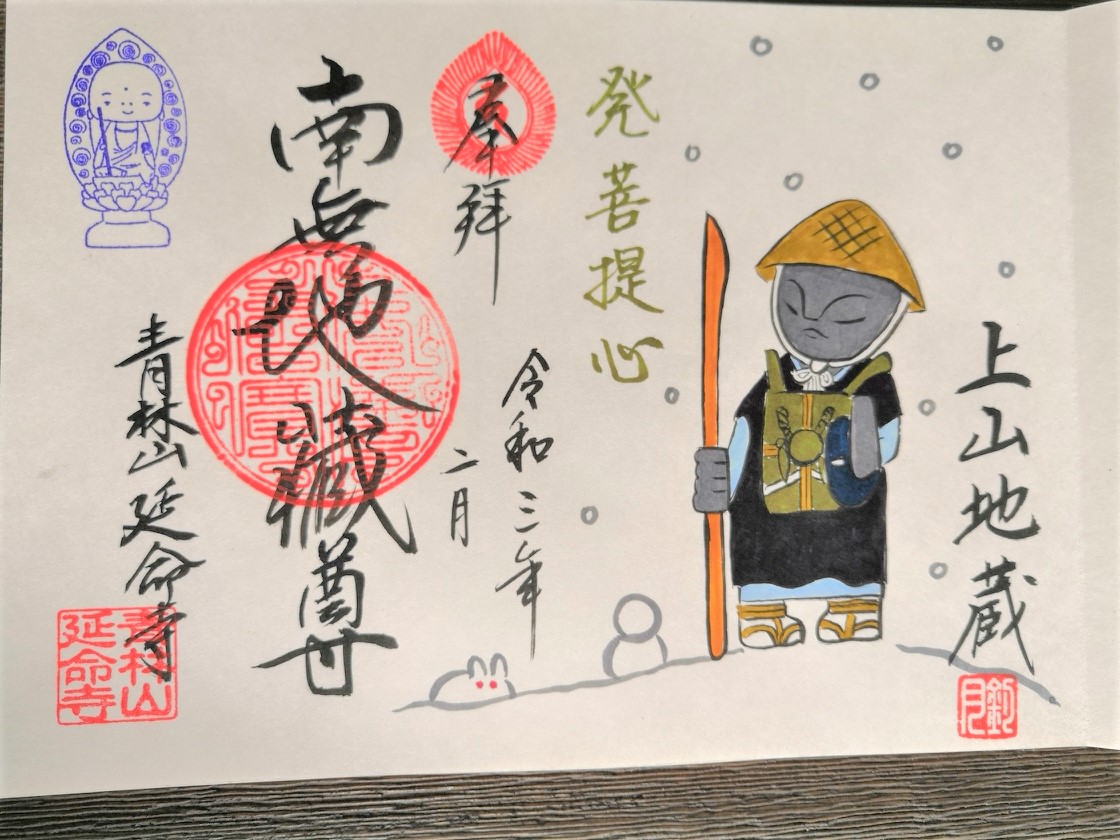 上山地蔵
発菩提心
奉拝
令和三年
二月
南無地蔵尊
青林山延命寺
青林山
延命寺